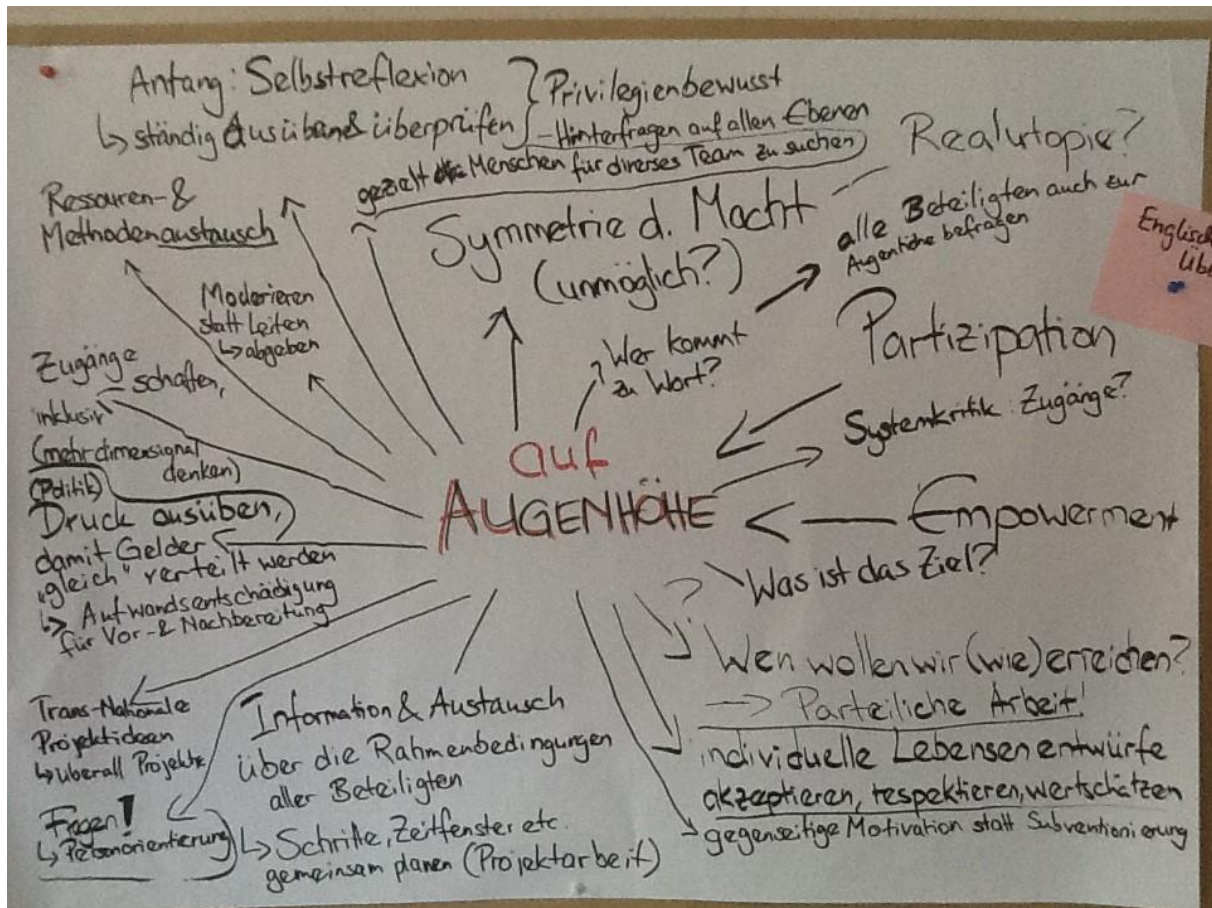 Anfang: Selbstreflexion
↳ ständig Ausüben & überprüfen
Privilegienbewusst
- Hinterfragen auf allen Ebenen
gezielt Menschen für diverses Team zu suchen
Realutopie?
Ressouren- &
Methodenaustausch
Symmetrie d. Macht
(unmöglich?)
alle Beteiligten auch zur
Augenhöhe befragen
Englisch
Übe
Moderieren
statt Leiten
↳ abgeben
Wer kommt
zu Wort?
Partizipation
Systemkritik: Zugänge?
Zugänge
schaffen,
inklusiv
(mehrdimensional
denken)
(Politik)
Druck ausüben,
damit Gelder
„gleich" verteilt werden
↳ Aufwandsentschädigung
für Vor- & Nachbereitung
auf
AUGENHÖHE
Empowerment
? Was ist das Ziel?
Wen wollen wir (wie) erreichen?
→ Parteiliche Arbeit!
individuelle Lebensenentwürfe
akzeptieren, respektieren, wertschätzen
gegenseitige Motivation statt Subventionierung
Trans-Nationale
Projektideen
↳ überall Projekte
Fragen!
↳ Personorientierung
Information & Austausch
über die Rahmenbedingungen
aller Beteiligten
↳ Schritte, Zeitfenster etc.
gemeinsam planen (Projektarbeit)